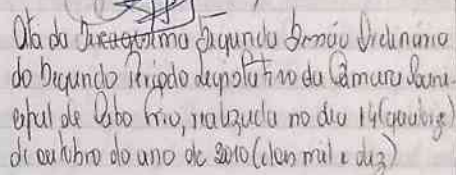 Ata da Trigésima Segunda Sessão Ordinária
do Segundo Período Legislativo da Câmara Muni-
cipal de Cabo Frio, realizada no dia 14 (quatorze)
de outubro do ano de 2010 (dois mil e dez)